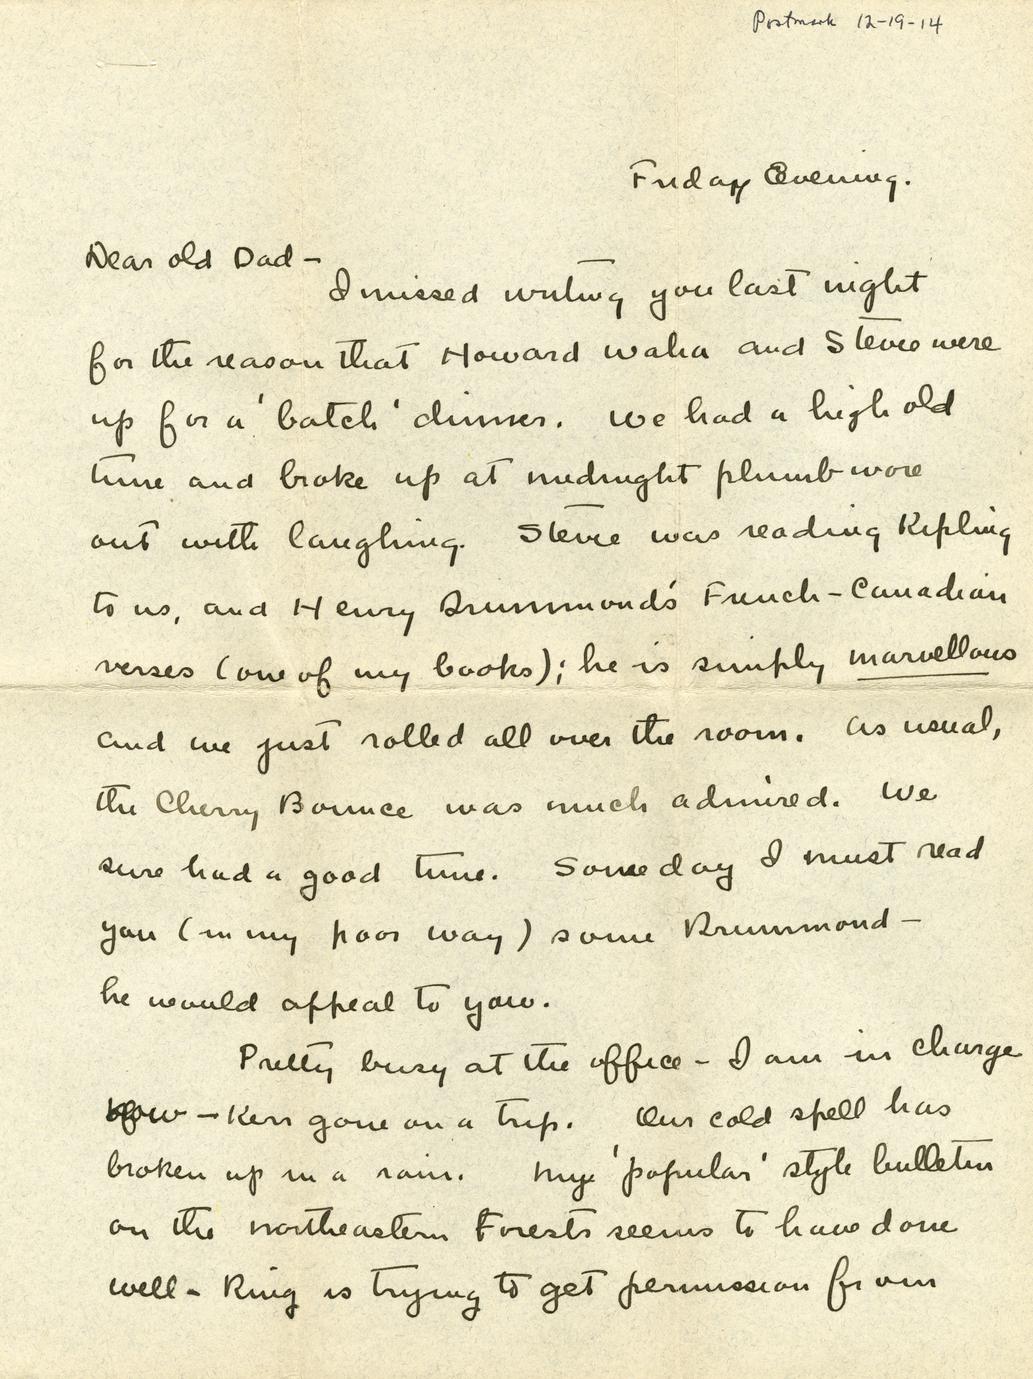 Postmark 12-19-14
Friday Evening.
Dear old Dad —
I missed writing you last night
for the reason that Howard Waha and Stevie were
up for a 'batch' dinner. We had a high old
time and broke up at midnight plumb wore
out with laughing. Stevie was reading Kipling
to us, and Henry Drummond's French-Canadian
verses (one of my books); he is simply marvellous
and we just rolled all over the room. As usual,
the Cherry Bounce was much admired. We
sure had a good time. Some day I must read
you (in my poor way) some Drummond —
he would appeal to you.
Pretty busy at the office - I am in charge
now — Kerr gone on a trip. Our cold spell has
broken up in a rain. My 'popular' style bulletin
on the northeastern Forests seems to have done
well - Ring is trying to get permission from